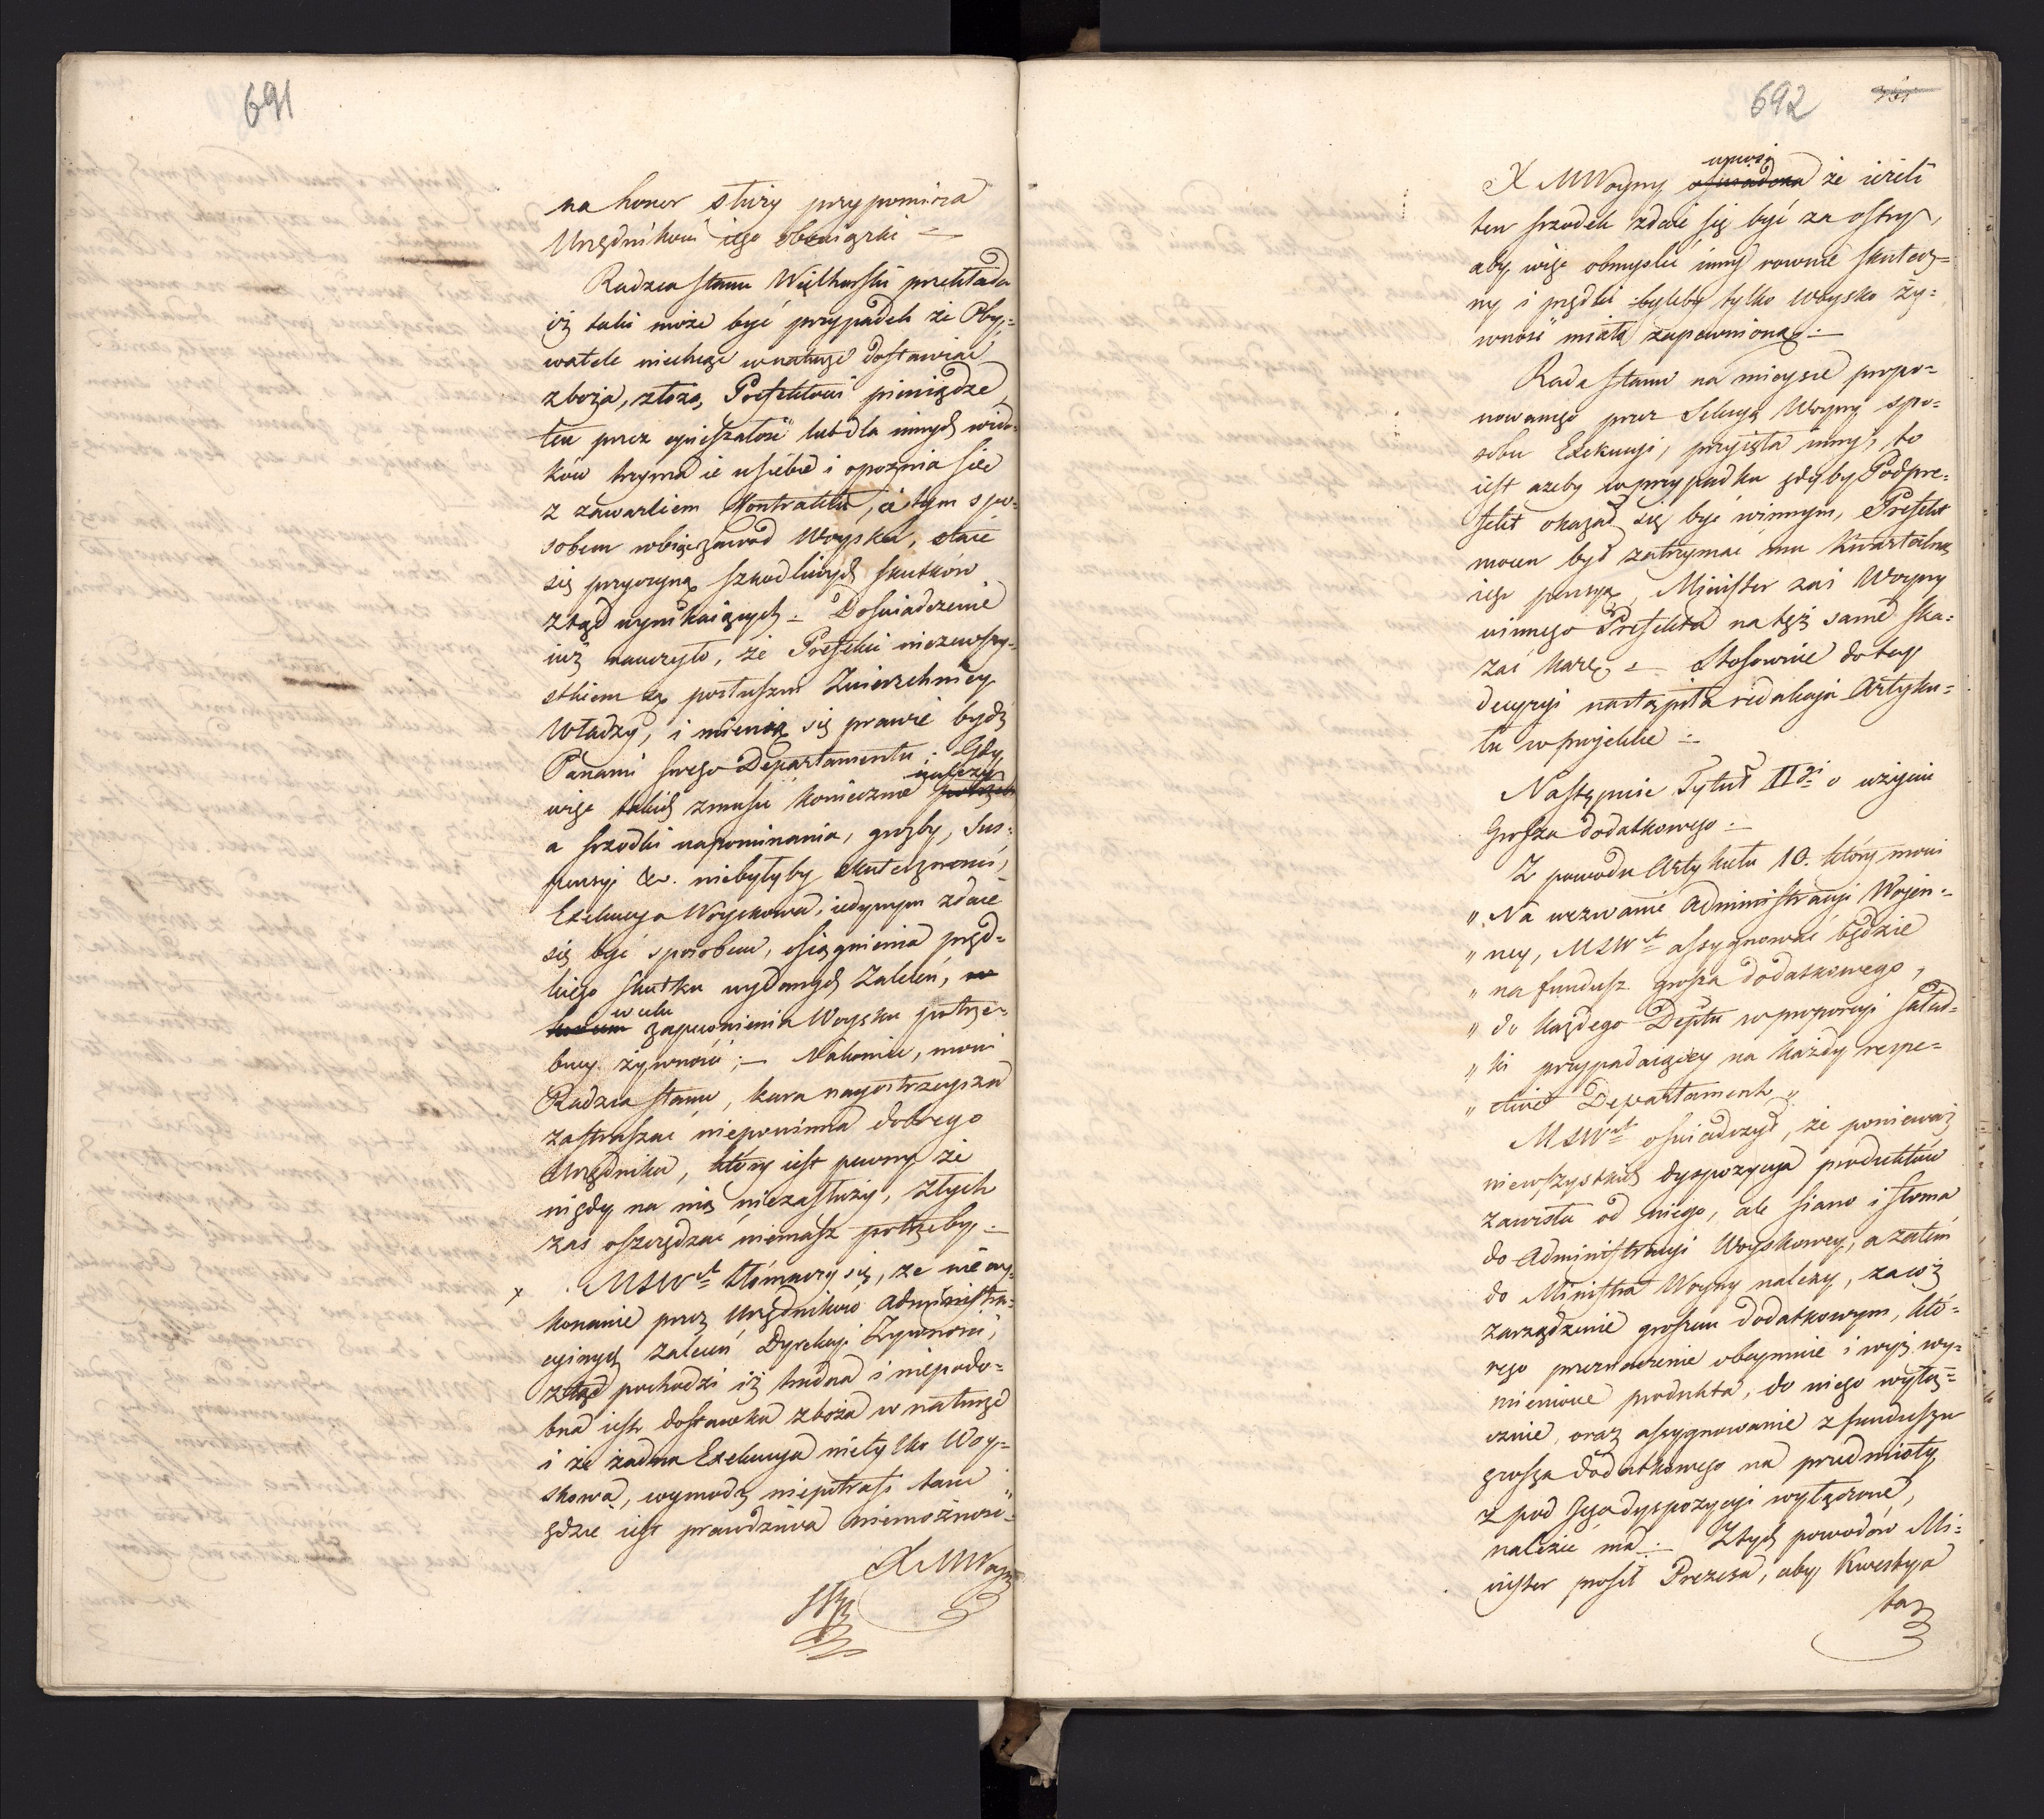 691
na honor stuży przypomina
Urzędnikowi iego obowiązki —
Radzca Stanu Wielhorski przekłada
iż taki może być przypadek że Oby-
watele niechcąc w naturze dostawiać
zboża, złożą Prefektowi pieniądze,
ten przez opieszałość lub dla innych wido-
ków trzyma ie u siebie i opoznia się
z zawarciem Kontraktu, a tym spo-
sobem robiąc zawód Woysku, staie
się przyczyną szkodliwych skutków
ztąd wynikaiących. — Doświadczenie
iuż nauczyło, że Prefekci niezewszy-
stkiem są posłuszni Zwierzchniey
Władzy, i mienią się prawie bydź
Panami swego Departamentu; Gdy
więc takich zmusić koniecznie należy
a srzodki napominania, groźby, Sus-
pensyi &c. niebyłyby skutecznemi,
Exekucya Woyskowa, iedynym zdaie
się być sposobem, osiągnienia pręd-
kiego skutku wydanych Zaleceń, w
w celu zapewnienia Woysku potrze-
bney żywności; — Nakoniec, mowi
Radzca Stanu, kara nayostrzeysza
zastraszać niepowinna dobrego
Urzędnika, który iest pewny że
nigdy na nią niezasłuży, złych
zaś oszczędzać niemasz potrzeby. —
x MSWet tłómaczy się, że niewy-
konanie przez Urzędników Administra-
cyinych Zaleceń Dyrekcyi Żywności,
ztąd pochodzi iż trudna i niepodo-
bna iest dostawka zboża w naturze
i że żadna Exekucya nietylko Woy-
skowa, wymodz niepotrafi tam
gdzie iest prawdziwa niemożność —
X MWoyny
692
X MWoyny wnosi oswiadcza że ieżeli
ten srzodek zdaie się być za ostry,
aby więc obmyslić inny rownie skutecz-
ny i prędki byleby tylko Woysko ży-
wność miało zapewnioną. —
Rada Stanu na mieysce propo-
nowanego przez Sekcyą Woyny spo-
sobu Exekucyi, przyięła inny, to
iest ażeby w przypadku gdyby Podpre-
fekt okazał się być winnym, Prefekt
mocen był zatrzymać mu kwartalną
iego pensyą, Minister zaś Woyny
winnego Prefekta na tęż samę ska-
zać karę. — Stosownie do tey
decyzyi nastąpiła redakcja Artyku-
łu w projekcie —
Następnie Tytuł IIgi o użyciu
Grosza dodatkowego. —
Z powodu Artykułu 10. który mowi
„ Na wezwanie Administracyi Wojen-
„ ney, MSWet assygnować będzie
„ na fundusz grosza dodatkowego,
„ do każdego Deptu w proporcyi składki
„ ki przypadaiącey na każdy respe-
„ ctive Departament „
MSWet oświadczył, że ponieważ
niewszystkich dyspozycya produktów
zawisła od niego, ale siano i słoma
do Administracyi Woyskowey, a zatém
do Ministra Woyny należy, zawż
zarządzenie groszem dodatkowym, któ-
rego przeznaczenie obeymuie i wyż wy-
mienione produkta, do niego wyłą-
cznie, oraz assygnowanie z funduszu
grosza dodatkowego na przedmioty
z pod Jego dyspozycyi wyłączone,
należeć ma. — Z tych powodów Mi-
nister prosił Prezesa, aby Kwestya
ta